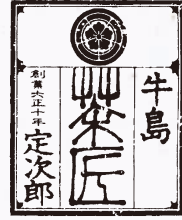 牛島
茶匠
創業大正十年
定次郎